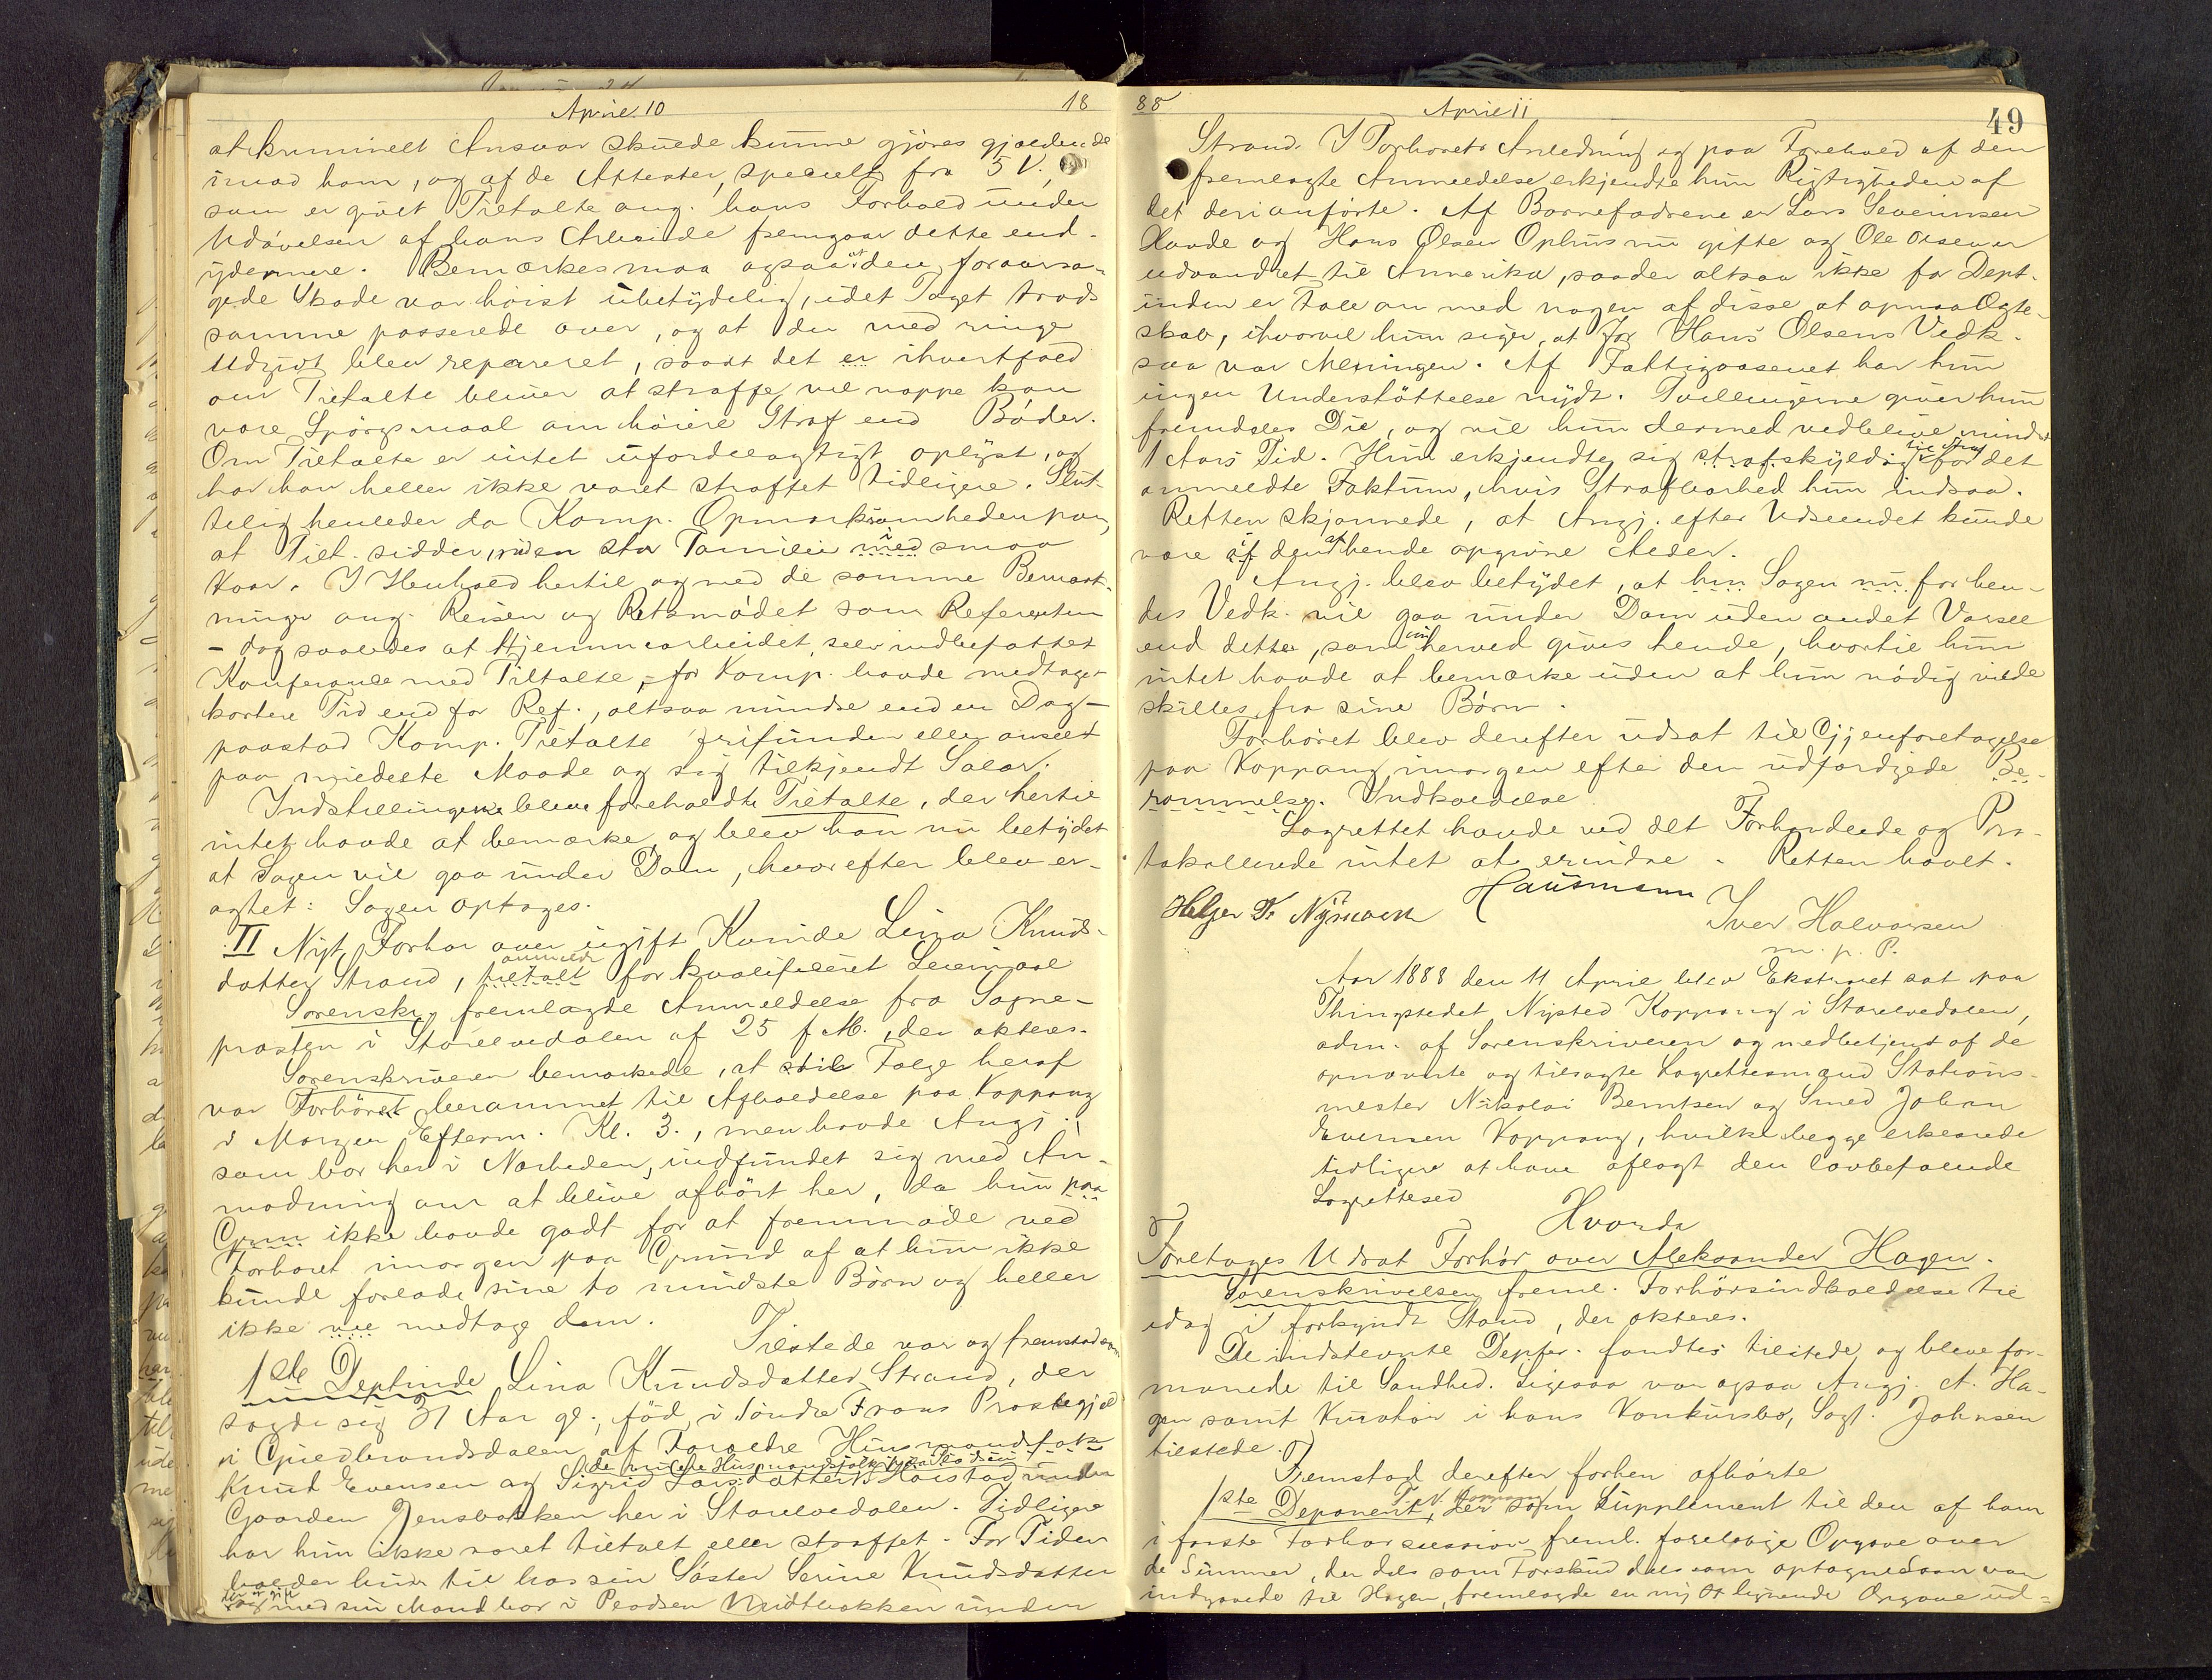 April 10
18
at kriminelt Ansvar skulde kunne gjøres gjældende
imod ham, og af de Attester, specielt fra 5 V.,
som er givet Tiltalte ang. hans Forhold under
Udøvelsen af hans Arbeide fremgaar dette end-
ydermere. Bemærkes maa ogsaa at den foraarsa-
gede Skade var høist ubetydelig, idet Toget trods
samme passerede over, og at den med ringe
Udgivt blev repareret, saa at det er ihvertfald
om Tiltalte bliver at straffe vel nappe kan
være Spørgsmaal om høiere Straf end Bøder.
Om Tiltalte er intet ufordelagtigt oplyst, og
har han heller ikke været straffet tidligere. Slut-
telig henleder da Komp. Opmærksomheden paa,
at Tilt. sidder, med en stor Familie i smaa
Kaar. I Henhold hertil og med de samme Bemærk-
ninger ang. Reisen og Retsmødet som Referenten
- dog saaledes at Hjemmearbeidet, selv indbefattet
Konferance med Tiltalte, for Komp. havde medtaget
kortere Tid end for Ref., altsaa mindre end en Dag -
paastod Komp. Tiltalte frifunden eller anseet
paa mildeste Maade og sig tilkjendt Salær.
Indstillingerne bleve foreholdte Tiltalte, der hertil
intet havde at bemærke og blev han nu betydet
at Sagen vil gaa under Dom, hvorefter blev er-
agtet: Sagen optages.
II Nyt Forhør over ugift Kvinde Lina Knuds-
anmeldt
datter Strand, tiltalt for kvalificeret Leiermaal
Sorenskr. fremlagde Anmeldelse fra Sogne-
præsten i Storelvedalen af 25 f. M., der akteres.
Sorenskriveren bemærkede, at til Følge heraf
var Forhøret berammet til Afholdelse paa Koppang
i Morgen Efterm. Kl. 3., men havde Angj.,
som bor her i Nærheden, indfundet sig med An-
modning om at blive afhørt her, da hun paa
Grun ikke havde godt for at fremmøde ved
Forhøret imorgen paa Grund af at hun ikke
kunde forlade sine to mindste Børn og heller
ikke vil medtage dem.
Tilstede var og fremstod som
1ste Deptinde Lina Knudsdatter Strand, der
sagde sig 31 Aar gl., fød i Søndre Frons Præstegjæld
i Gudbrandsdalen af Forældre Husmandsfolk
Knud Evensen og Sigrid Larsdatter Haistad under
Gaarden Jensbakken her i Storelvedalen. Tidligere
har hun ikke været tiltalt eller straffet. For Tiden
holder hun til hos sin Søster Serine Knudsdatter
der er gift
og med sin Mand bor i Pladsen Midtbakken under
88
April 11
49
Strand. I Forhørets Anledning og paa Forehold af den
fremlagte Anmeldelse erkjendte hun Rigtigheden af
det deri anførte. Af Barnefædrene er Lars Severinsen
Havde og Hans Olsen Ophus nu gifte og Ole Olsen er
udvandret til Amerika, saa der altsaa ikke for Dept-
inden er Tale om med nogen af disse at opnaa Ægte-
skab, ihvorvel hun siger, at for Hans Olsens Vedk.
saa var Meningen. Af Fattigvæsenet har hun
ingen Understøttelse nydt. Tvillingerne giver hun
fremdeles Die, og vil hun dermed vedblive mindst
1 Aars Tid. Hun erkjendte sig strafskyldig for det
anmeldte Faktum, hvis Strafbarhed hun indsaa.
Retten skjønnede, at Angj. efter Udseendet kunde
være af den af hende opgivne Alder.
Angj. blev betydet, at hun Sagen nu for hen-
des Vedk. vil gaa under Dom uden andet Varsel
end dette, som herved gives hende, hvortil hun
intet havde at bemærke uden at hun nødig vilde
skilles fra sine Børn.
Forhøret blev derefter udsat til Gjenforetagelse
paa Koppang imorgen efter den udfærdigede Be-
rammelse. Indkaldelse
Lagrettet havde ved det Forhandlede og Pro-
tokollerede intet at erindre. Retten hævet.
Hausmann
Helger T. Nysmoen
Iver Halvorsen
m. p. P.
Aar 1888 den 11 April blev Ekstraret sat paa
Thingstedet Nysted Koppang i Storelvedalen,
adm. af Sorenskriveren og medbetjent af de
opnævnte og tilsagte Lagrettesmænd Stations-
mester Nikolai Berntsen og Smed Johan
Evensen Koppang, hvilke begge erklærede
tidligere at have aflagt den lovbefalede
Lagrettesed
Hvorda
Foretages Udsat Forhør over Aleksander Hagen.
Sorenskrivelsen freml. Forhørsindkaldelse til
idag i forkyndt Stand, der akteres.
De indstevnte Depter. fandtes tilstede og bleve for-
manede til Sandhed. Ligesaa var ogsaa Angj. A. Ha-
gen samt Kurator i hans Konkursbo, Sagf. Johnsen
tilstede.
Fremstod derefter forhen afhørte
1ste Deponent, der som Supplement til den af ham
i første Forhørsession freml. foreløbige Opgave over
de Summer, der dels som Forskud dels som optagne Laan var
indgaaede til Hagen, fremlagde en ny lignende Opgave ud-